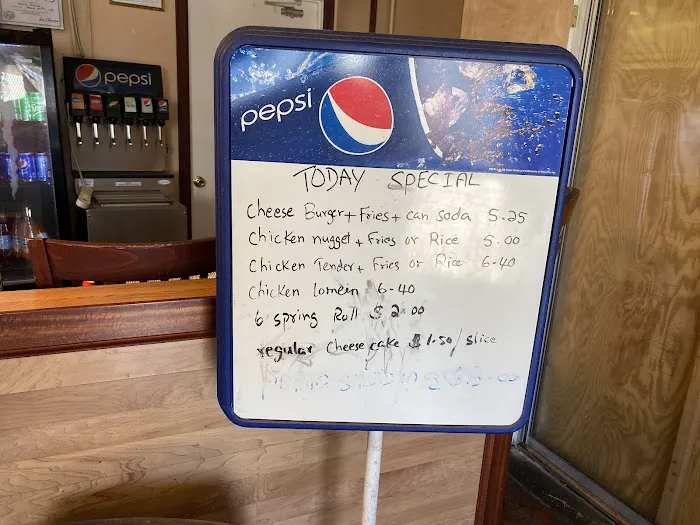 pepsi
pepsi
TODAY SPECIAL
Cheese Burger + Fries + can soda 5.25
Chicken nugget + Fries or Rice 5.00
Chicken Tender + Fries or Rice 6-40
Chicken lomein 6-40
6 spring Roll $2.00
regular Cheese cake $1.50/slice